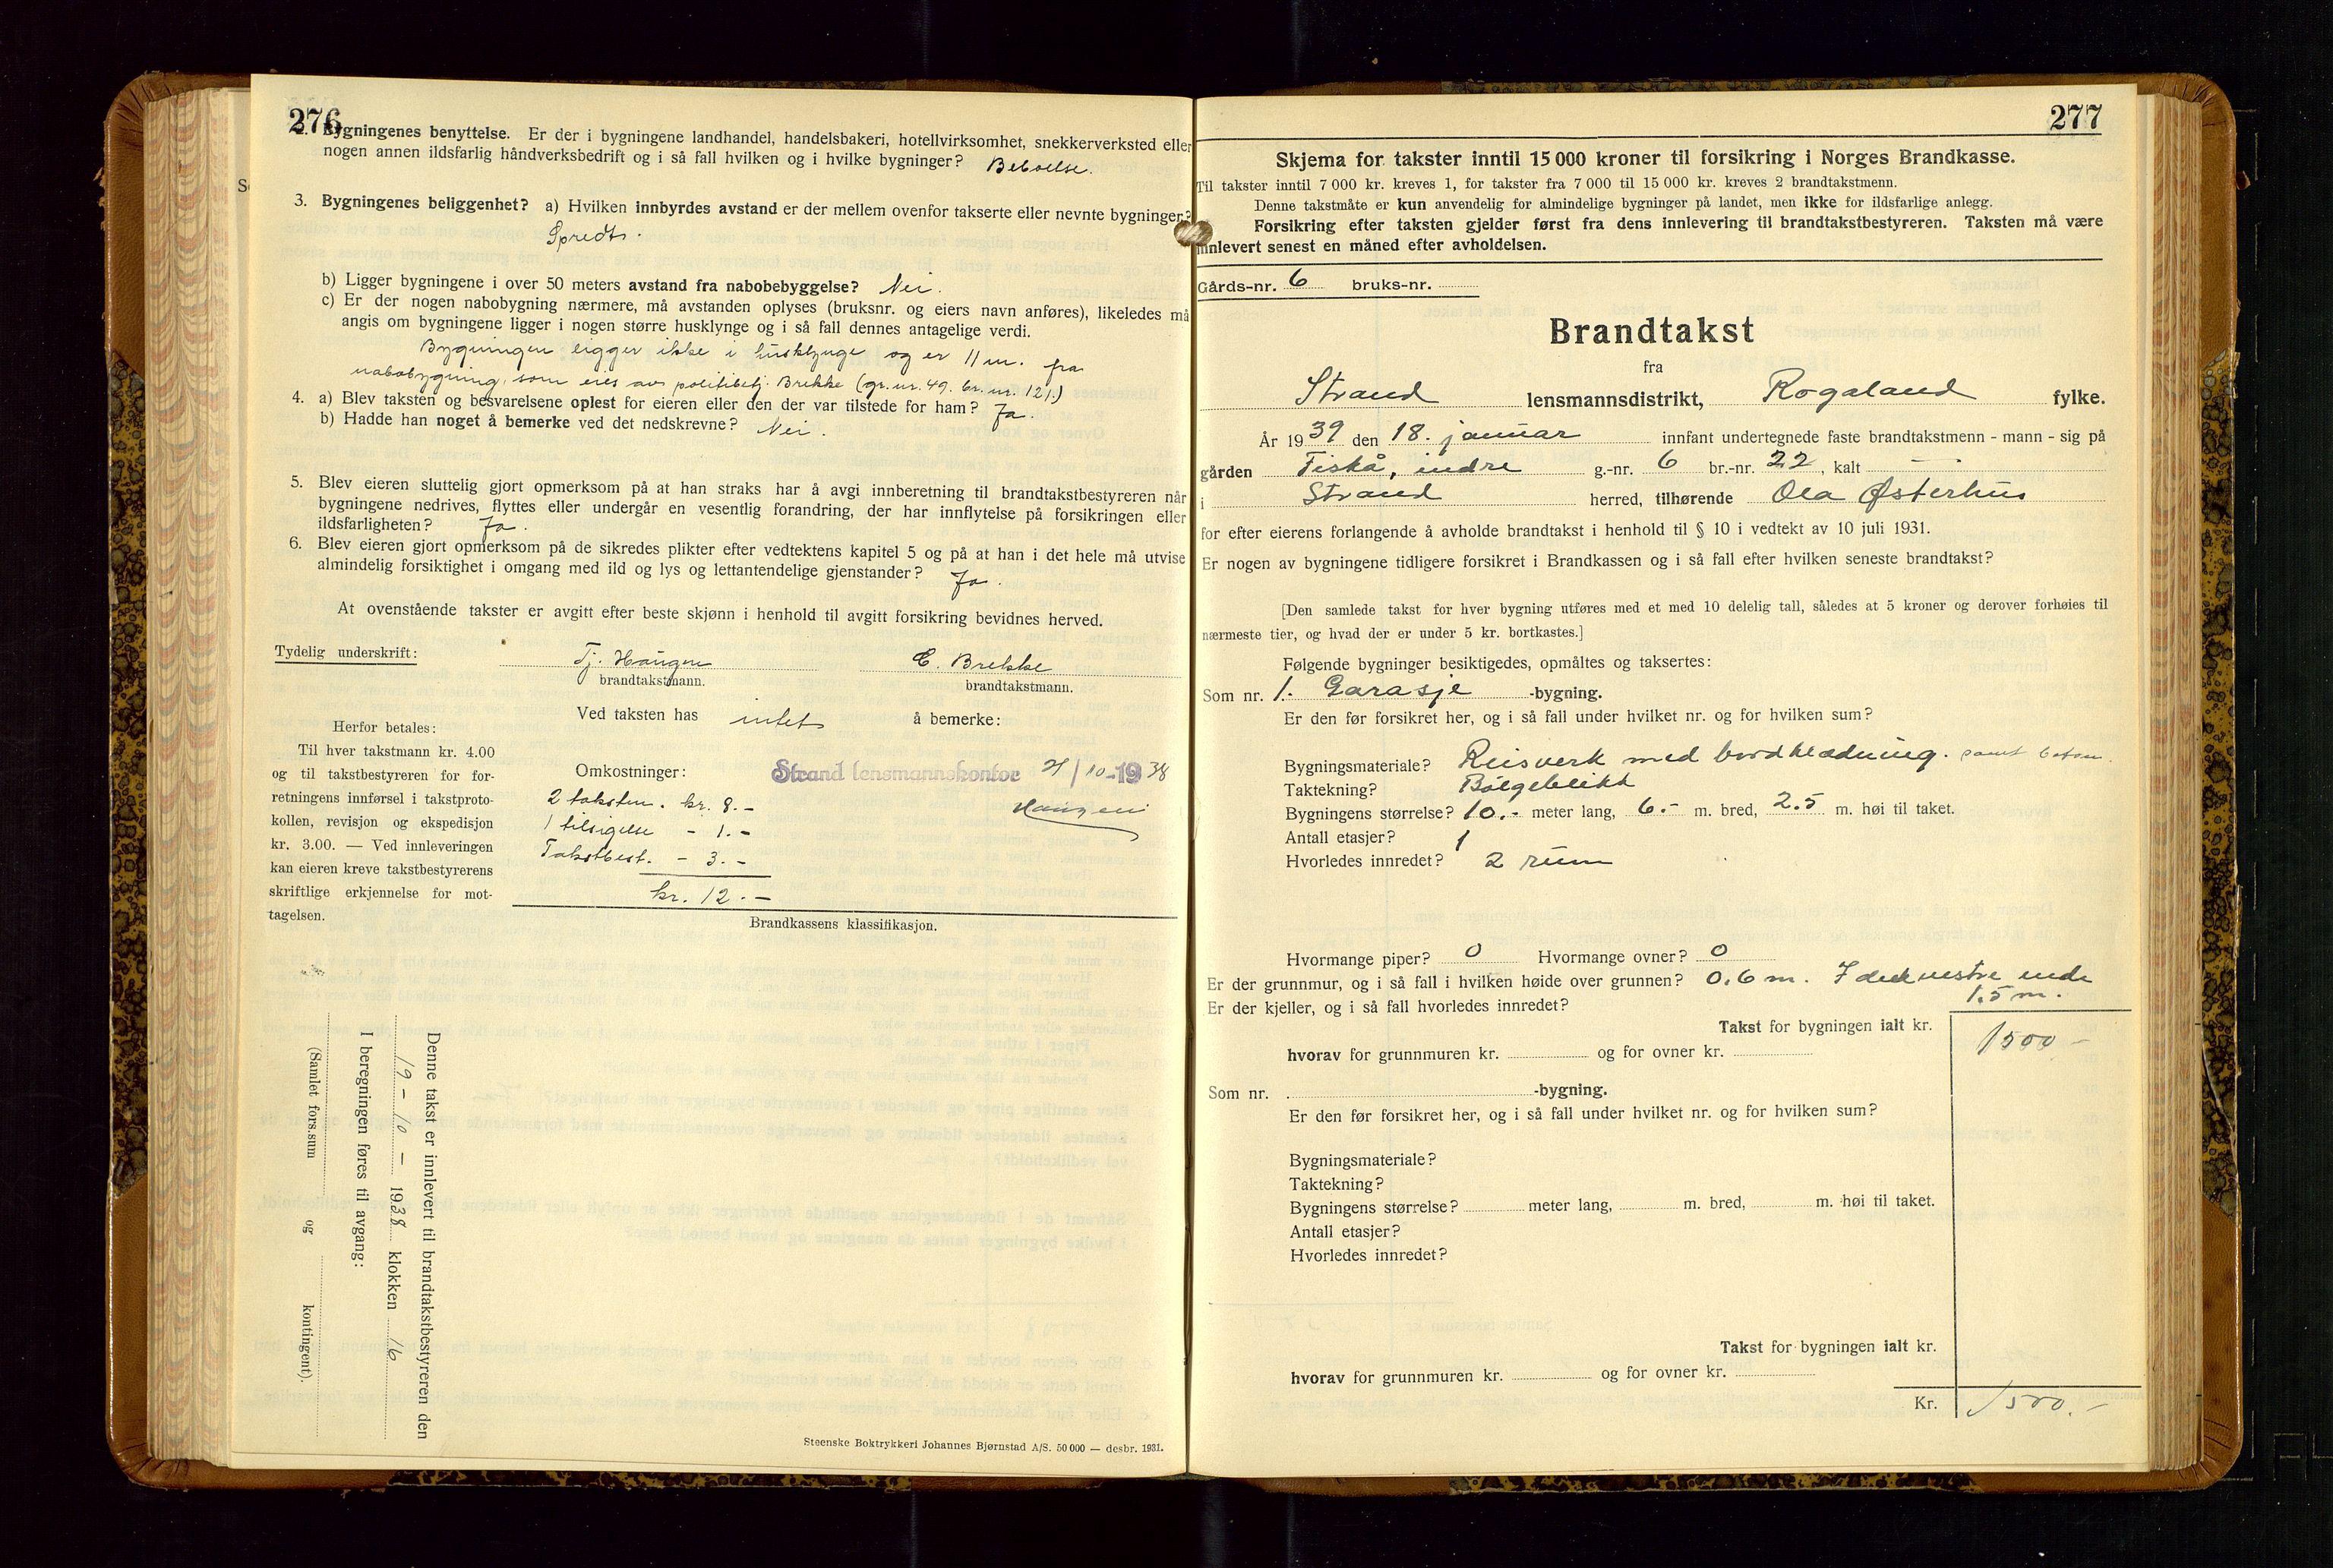 276
2. Bygningenes benyttelse. Er der i bygningene landhandel, handelsbakeri, hotellvirksomhet, snekkerverksted eller
nogen annen ildsfarlig håndverksbedrift og i så fall hvilken og i hvilke bygninger? Beboelse.
3. Bygningenes beliggenhet? a) Hvilken innbyrdes avstand er der mellem ovenfor takserte eller nevnte bygninger?
Spredt.
b) Ligger bygningene i over 50 meters avstand fra nabobebyggelse? Nei.
c) Er der nogen nabobygning nærmere, må avstanden oplyses (bruksnr. og eiers navn anføres), likeledes må
angis om bygningene ligger i nogen større husklynge og i så fall dennes antagelige verdi.
Bygningen ligger ikke i husklynge og er 11 m. fra
nabobygning, som eies av politibetj. Brekke (gr.nr. 49. br. nr. 121.)
4. a) Blev taksten og besvarelsene oplest for eieren eller den der var tilstede for ham? Ja.
b) Hadde han noget å bemerke ved det nedskrevne? Nei.
5. Blev eieren sluttelig gjort opmerksom på at han straks har å avgi innberetning til brandtakstbestyreren når
bygningene nedrives, flyttes eller undergår en vesentlig forandring, der har innflytelse på forsikringen eller
ildsfarligheten? Ja.
6. Blev eieren gjort opmerksom på de sikredes plikter efter vedtektens kapitel 5 og på at han i det hele må utvise
almindelig forsiktighet i omgang med ild og lys og lettantendelige gjenstander? Ja.
At ovenstående takster er avgitt efter beste skjønn i henhold til avgitt forsikring bevidnes herved.
Tydelig underskrift: Tj. Haugen E. Brekke
brandtakstmann. brandtakstmann.
Ved taksten has intet å bemerke:
Herfor betales:
Til hver takstmann kr. 4.00
og til takstbestyreren for for-
retningens innførsel i takstproto-
kollen, revisjon og ekspedisjon
kr. 3.00. — Ved innleveringen
kan eieren kreve takstbestyrerens
skriftlige erkjennelse for mot-
tagelsen.
Omkostninger: Strand lensmannskontor 21/10-1938
2 taksten. kr. 8.- Haugen
1 tilsigelse - 1.-
Takstbest. - 3.-
kr. 12.-
Brandkassens klassifikasjon.
Denne takst er innlevert til brandtakstbestyreren den
19 - 10 - 1938 klokken 16
I beregningen føres til avgang:
(Samlet fors.sum og kontingent).
Steenske Boktrykkeri Johannes Bjørnstad A/S. 50 000 — desbr. 1931.
277
Skjema for takster inntil 15 000 kroner til forsikring i Norges Brandkasse.
Til takster inntil 7 000 kr. kreves 1, for takster fra 7 000 til 15 000 kr. kreves 2 brandtakstmenn.
Denne takstmåte er kun anvendelig for almindelige bygninger på landet, men ikke for ildsfarlige anlegg.
Forsikring efter taksten gjelder først fra dens innlevering til brandtakstbestyreren. Taksten må være
innlevert senest en måned efter avholdelsen.
Gårds-nr. 6 bruks-nr.
Brandtakst
fra
Strand lensmannsdistrikt, Rogaland fylke.
År 1939 den 18. januar innfant undertegnede faste brandtakstmenn - mann - sig på
gården Fiskå, indre g.-nr. 6 br.-nr. 22, kalt —
i Strand herred, tilhørende Ola Østerhus
for efter eierens forlangende å avholde brandtakst i henhold til § 10 i vedtekt av 10 juli 1931.
Er nogen av bygningene tidligere forsikret i Brandkassen og i så fall efter hvilken seneste brandtakst?
[Den samlede takst for hver bygning utføres med et med 10 delelig tall, således at 5 kroner og derover forhøies til
nærmeste tier, og hvad der er under 5 kr. bortkastes.]
Følgende bygninger besiktigedes, opmåltes og taksertes:
Som nr. 1. Garasje -bygning.
Er den før forsikret her, og i så fall under hvilket nr. og for hvilken sum?
Bygningsmateriale? Reisverk med bordklædning. samt beton.
Taktekning? Bølgeblikk
Bygningens størrelse? 10.- meter lang, 6.- m. bred, 2.5 m. høi til taket.
Antall etasjer? 1
Hvorledes innredet? 2 rum
Hvormange piper? 0 Hvormange ovner? 0
Er der grunnmur, og i så fall i hvilken høide over grunnen? 0.6 m. I den vestre ende
Er der kjeller, og i så fall hvorledes innredet? 1.5 m.
Takst for bygningen ialt kr. 1500 -
hvorav for grunnmuren kr. og for ovner kr.
Som nr. -bygning.
Er den før forsikret her, og i så fall under hvilket nr. og for hvilken sum?
Bygningsmateriale?
Taktekning?
Bygningens størrelse? meter lang, m. bred, m. høi til taket.
Antall etasjer?
Hvorledes innredet?
Takst for bygningen ialt kr.
hvorav for grunnmuren kr. og for ovner kr.
Kr. 1500.-